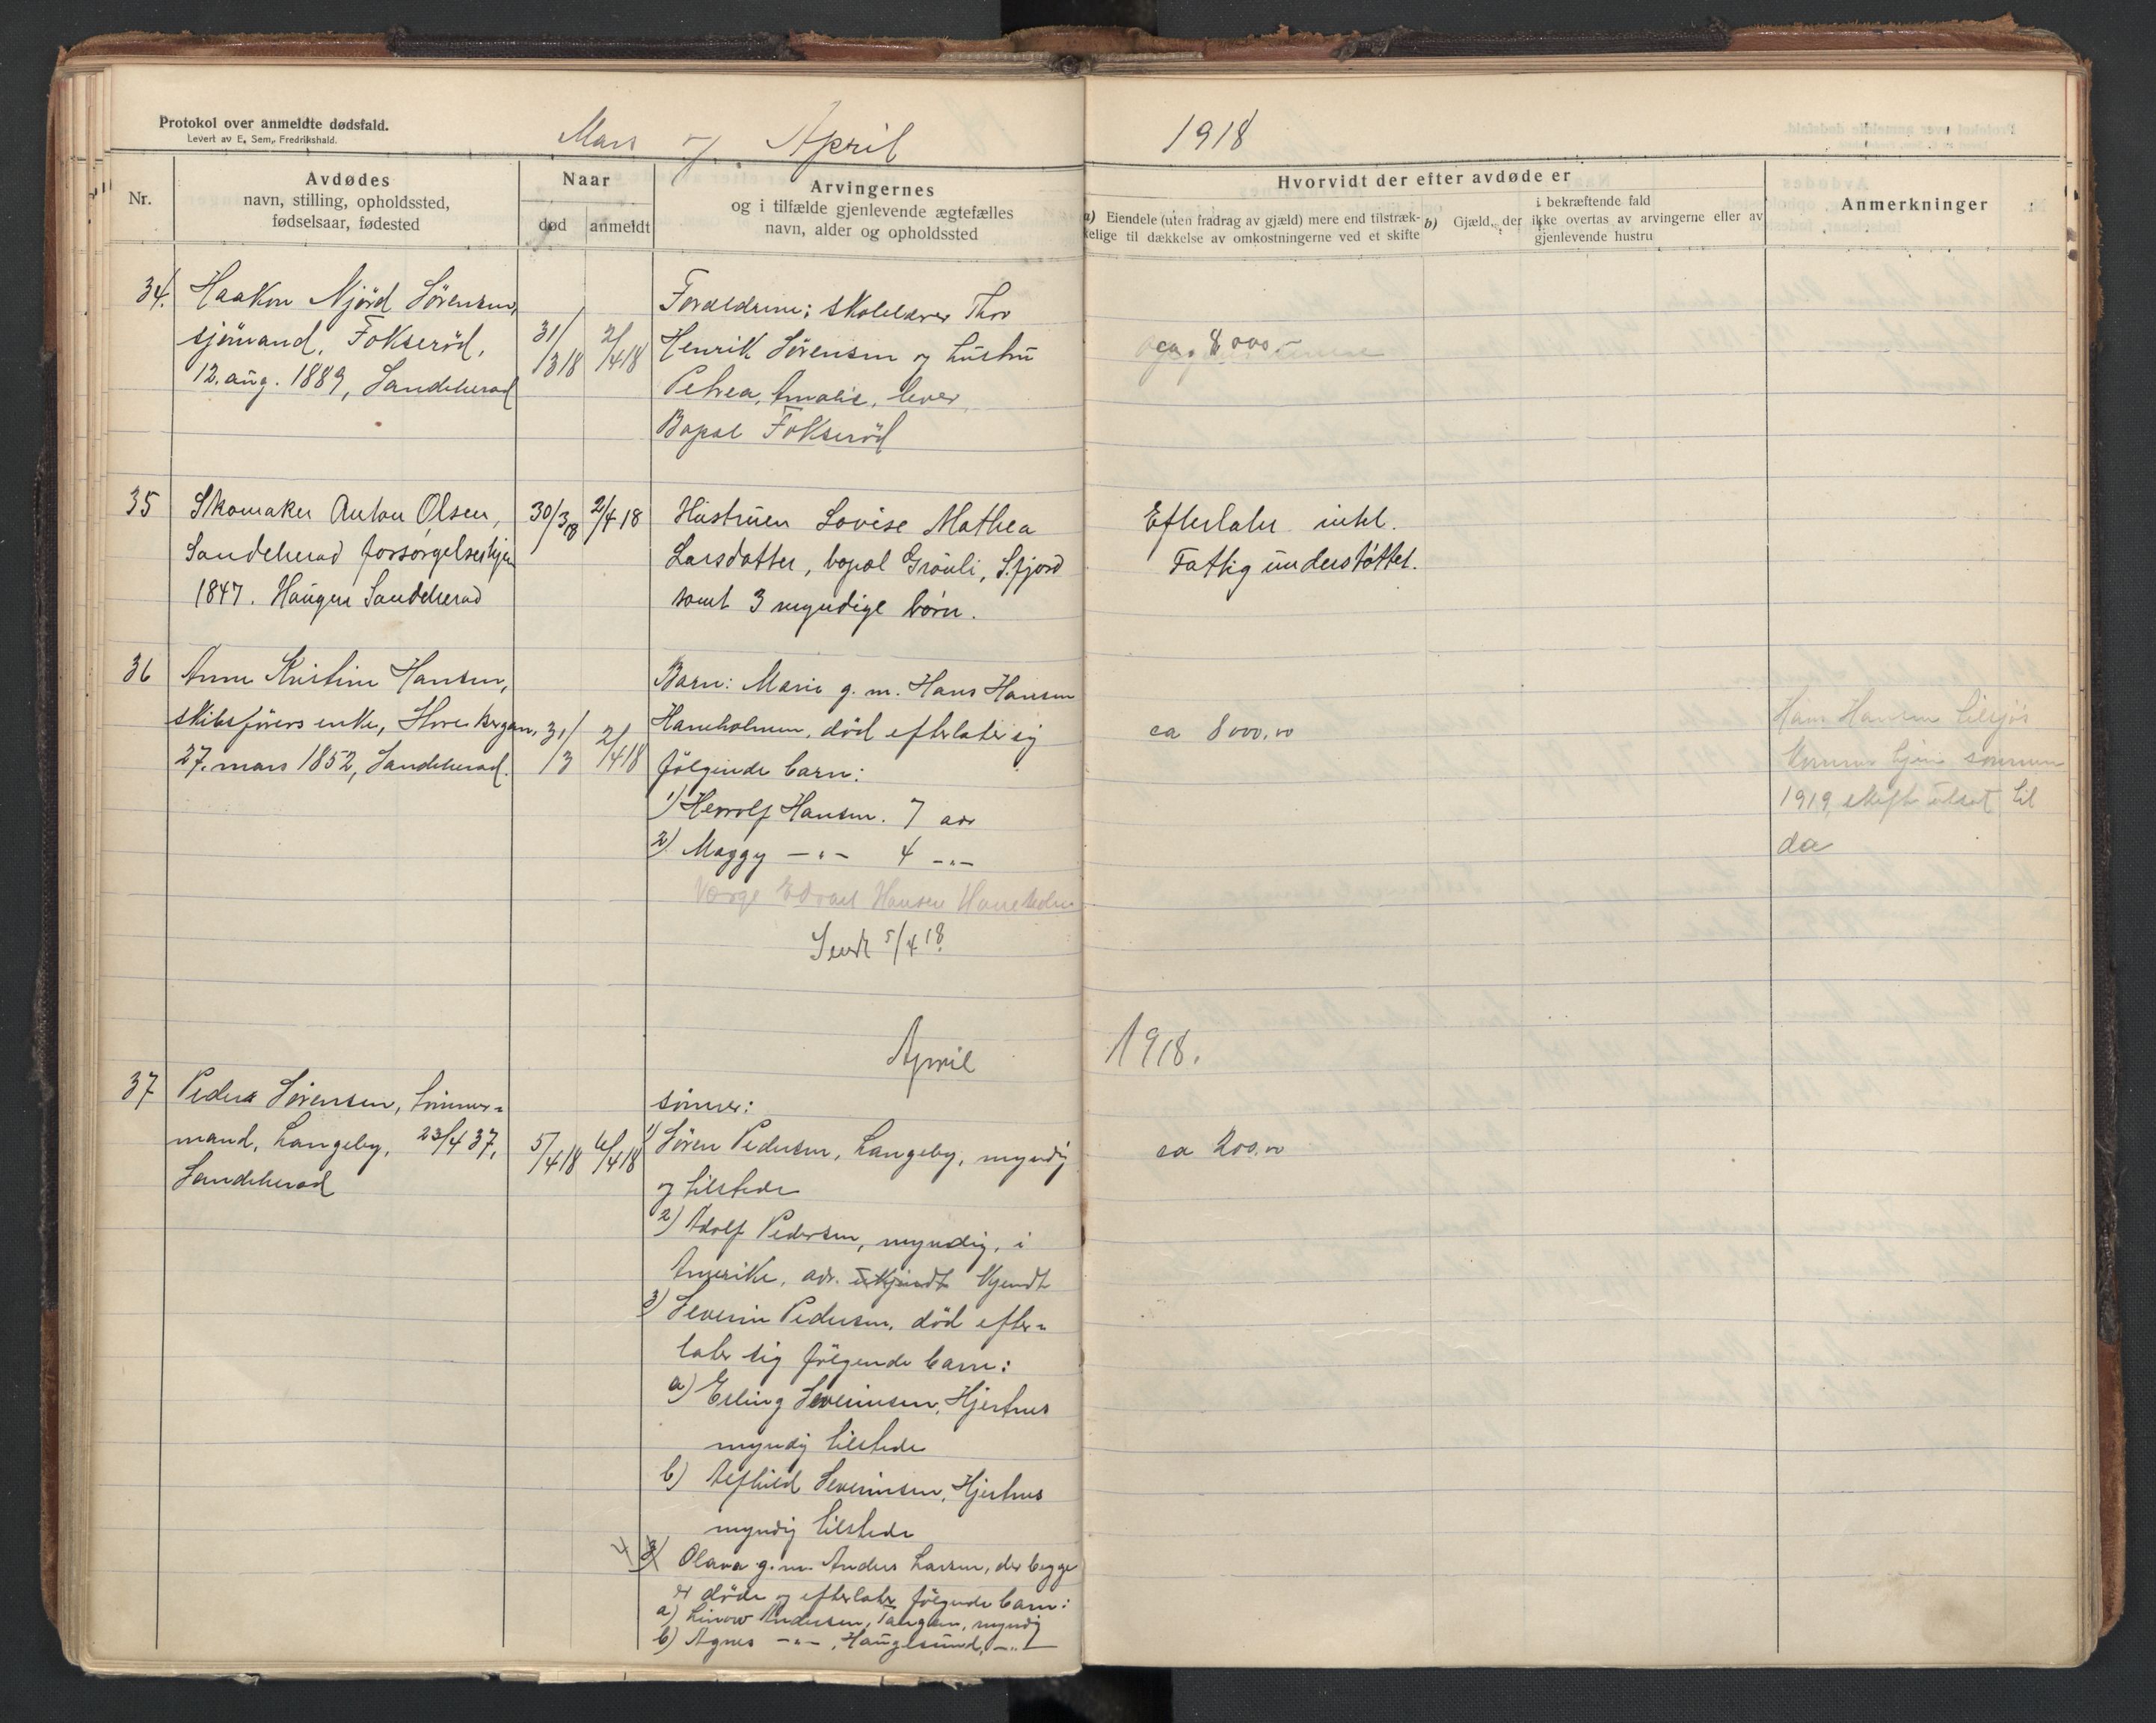 Protokol over anmeldte dødsfald.
Levert av E. Sem, Fredrikshald.
Mars og April 1918
Nr.
Avdødes
navn, stilling, opholdssted,
fødselsaar, fødested
Naar
død
anmeldt
Arvingernes
og i tilfælde gjenlevende ægtefælles
navn, alder og opholdssted
Hvorvidt der efter avdøde er
a) Eiendele (uten fradrag av gjæld) mere end tilstræk-
kelige til dækkelse av omkostningerne ved et skifte
b) Gjæld, der i bekræftende fald ikke overtas av arvingerne eller av
gjenlevende hustru
Anmerkninger
34.
Haakon Njörd Sörensen,
sjömand, Fokseröd,
12. aug. 1889, Sandeherad
31/3 18
2/4 18
Forældrene: skolelærer Thor
Henrik Sörensen og hustru
Petrea Amalie, lever,
Bopæl Fokseröd
ca. 8000.-
35
Skomaker Anton Olsen,
Sandeherad forsørgelseshjem
1847. Haugen Sandeherad
30/3 18
2/4 18
Hustruen Lovise Mathea
Larsdatter, bopæl Grönli, S.fjord
samt 3 myndige börn.
Efterlater intet.
Fattigunderstöttet.
36
Anne Kristine Hansen,
skibsförers enke,
27. mars 1852, Sandeherad.
31/3
2/4 18
Barn: Marie g. m. Hans Hansen
Haneholmen, död efterlater sig
fölgende barn:
1) Herrolf Hansen. 7 aar
2) Maggy -"- 4 -"-
Værge Edvard Hansen Haneholm
Sendt 5/4 18.
ca 8000.00
Hans Hansen tilsjös
kommer hjem sommeren
1919, skifte utsat til
da
April 1918.
37
Peder Sörensen, tömmer-
mand, Langeby, 23/4 37,
Sandeherad
5/4 18
6/4 18
sönner:
1) Sören Pedersen, Langeby, myndig
og tilstede
2) Adolf Pedersen, myndig, i
Amerika, adr. ukjendt kjendt
3) Severin Pedersen, död efter-
later sig fölgende barn:
a) Erling Severinsen, Hjertnes
myndig tilstede
b) Alfhild Severinsen, Hjertnes
myndig tilstede
4 3) Olava g. m. Anders Larsen, der begge
er döde og efterlater fölgende barn:
a) Andersen, Tangen, myndig
b) Agnes -"-, Haugesund, -"-
ca 200.00